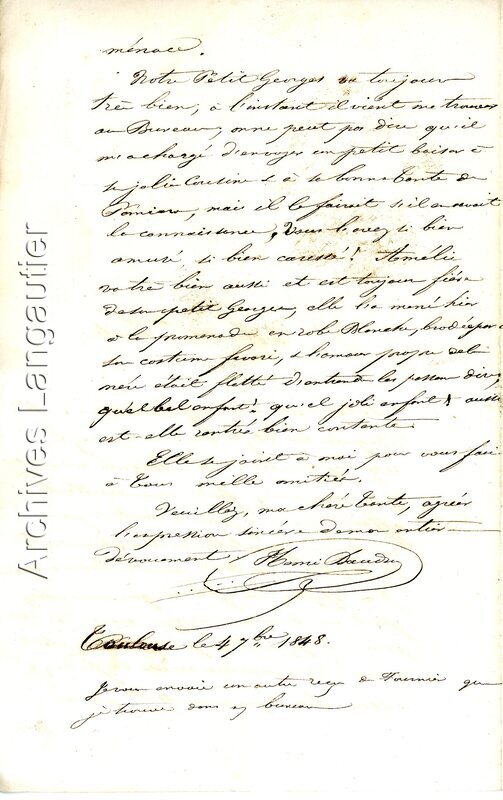 ménace.
Notre Petit Georges va toujours
très bien, à l'instant il vient me trouver
au Bureau, on ne peut pas dire qu'il
m'a chargé d'envoyer un petit baiser à
sa jolie Cousine & à sa bonne Tante de
mais il le fairait s'il en avait
la connaissance, Vous l'avez si bien
amusé, si bien caressé! Amélie
va très bien aussi et est toujour fière
de son petit Georges, elle l'a mené hier
à la promenade en robe Blanche, brodée par
son costume favori, l'amour propre de la
mere était flatté d'entendre les passans dire,
quel bel enfant! quel joli enfant! aussi
est-elle rentrée bien contente.
Elle se joint à moi pour vous faire
à Tous mille amitiés.
Veuillez, ma chère Tante, agréer
l'expression sincère de mon entier
dévouement Henri
Toulouse le 4 7bre 1848.
Je vous envoie un autre reçu de Fournier que
je trouve dans bureau
Archives Langautier